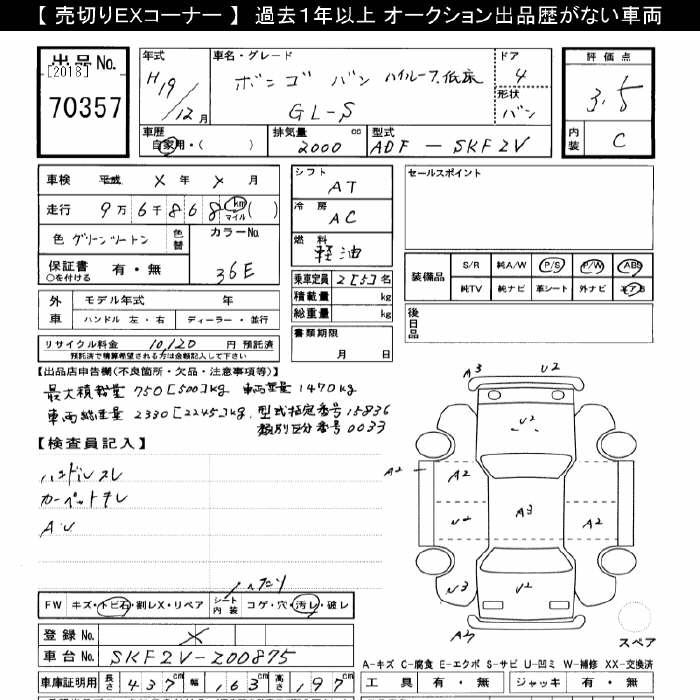 【 売切りEXコーナー 】 過去1年以上 オークション出品歴がない車両
出品No.
[2018]
70357
年式
H19/12月
車名・グレード
ボンゴ バン ハイルーフ.低床
GL-S
ドア
4
形状
バン
評価点
3.5
内装
C
車歴
自家用・( )
排気量 cc
2000
型式
ADF - SKF2V
車検 平成 X 年 X 月
走行 9万6千868 km マイル ( )
色 グリーンツートン
色替
カラーNo.
36E
保証書 有・無
○を付ける
シフト
AT
冷房
AC
燃料
軽油
乗車定員 2[5]名
積載量 kg
総重量 kg
書類期限
月 日
セールスポイント
装備品
S/R 純A/W P/S P/W ABS
純TV 純ナビ 革シート 外ナビ エアB
後日品
外車
モデル年式 年
ハンドル 左・右 ディーラー・並行
リサイクル料金 10,120 円 預託済
預託済で精算希望される方は金額記入して下さい
【出品店申告欄(不良箇所・欠品・注意事項等)】
最大積載量 750[500]kg 車両重量 1470kg
車両総重量 2330[2245]kg. 型式指定番号 15836
類別区分番号 0033
【検査員記入】
ハンドルスレ
カーペットキレ
A.U
A3 U2
U2
A2 A2
U2 A3 A2
U3 U2
スペア
FW キズ・トビ石・割レX・リペア
シート内装 コゲ・穴・汚レ・破レ
登録No. X
車台No. SKF2V-200875
車庫証明用 長さ 437cm 幅 163cm 高さ 197cm
A-キズ C-腐食 E-エクボ S-サビ U-凹ミ W-補修 XX-交換済
工具 有・無 ジャッキ 有・無